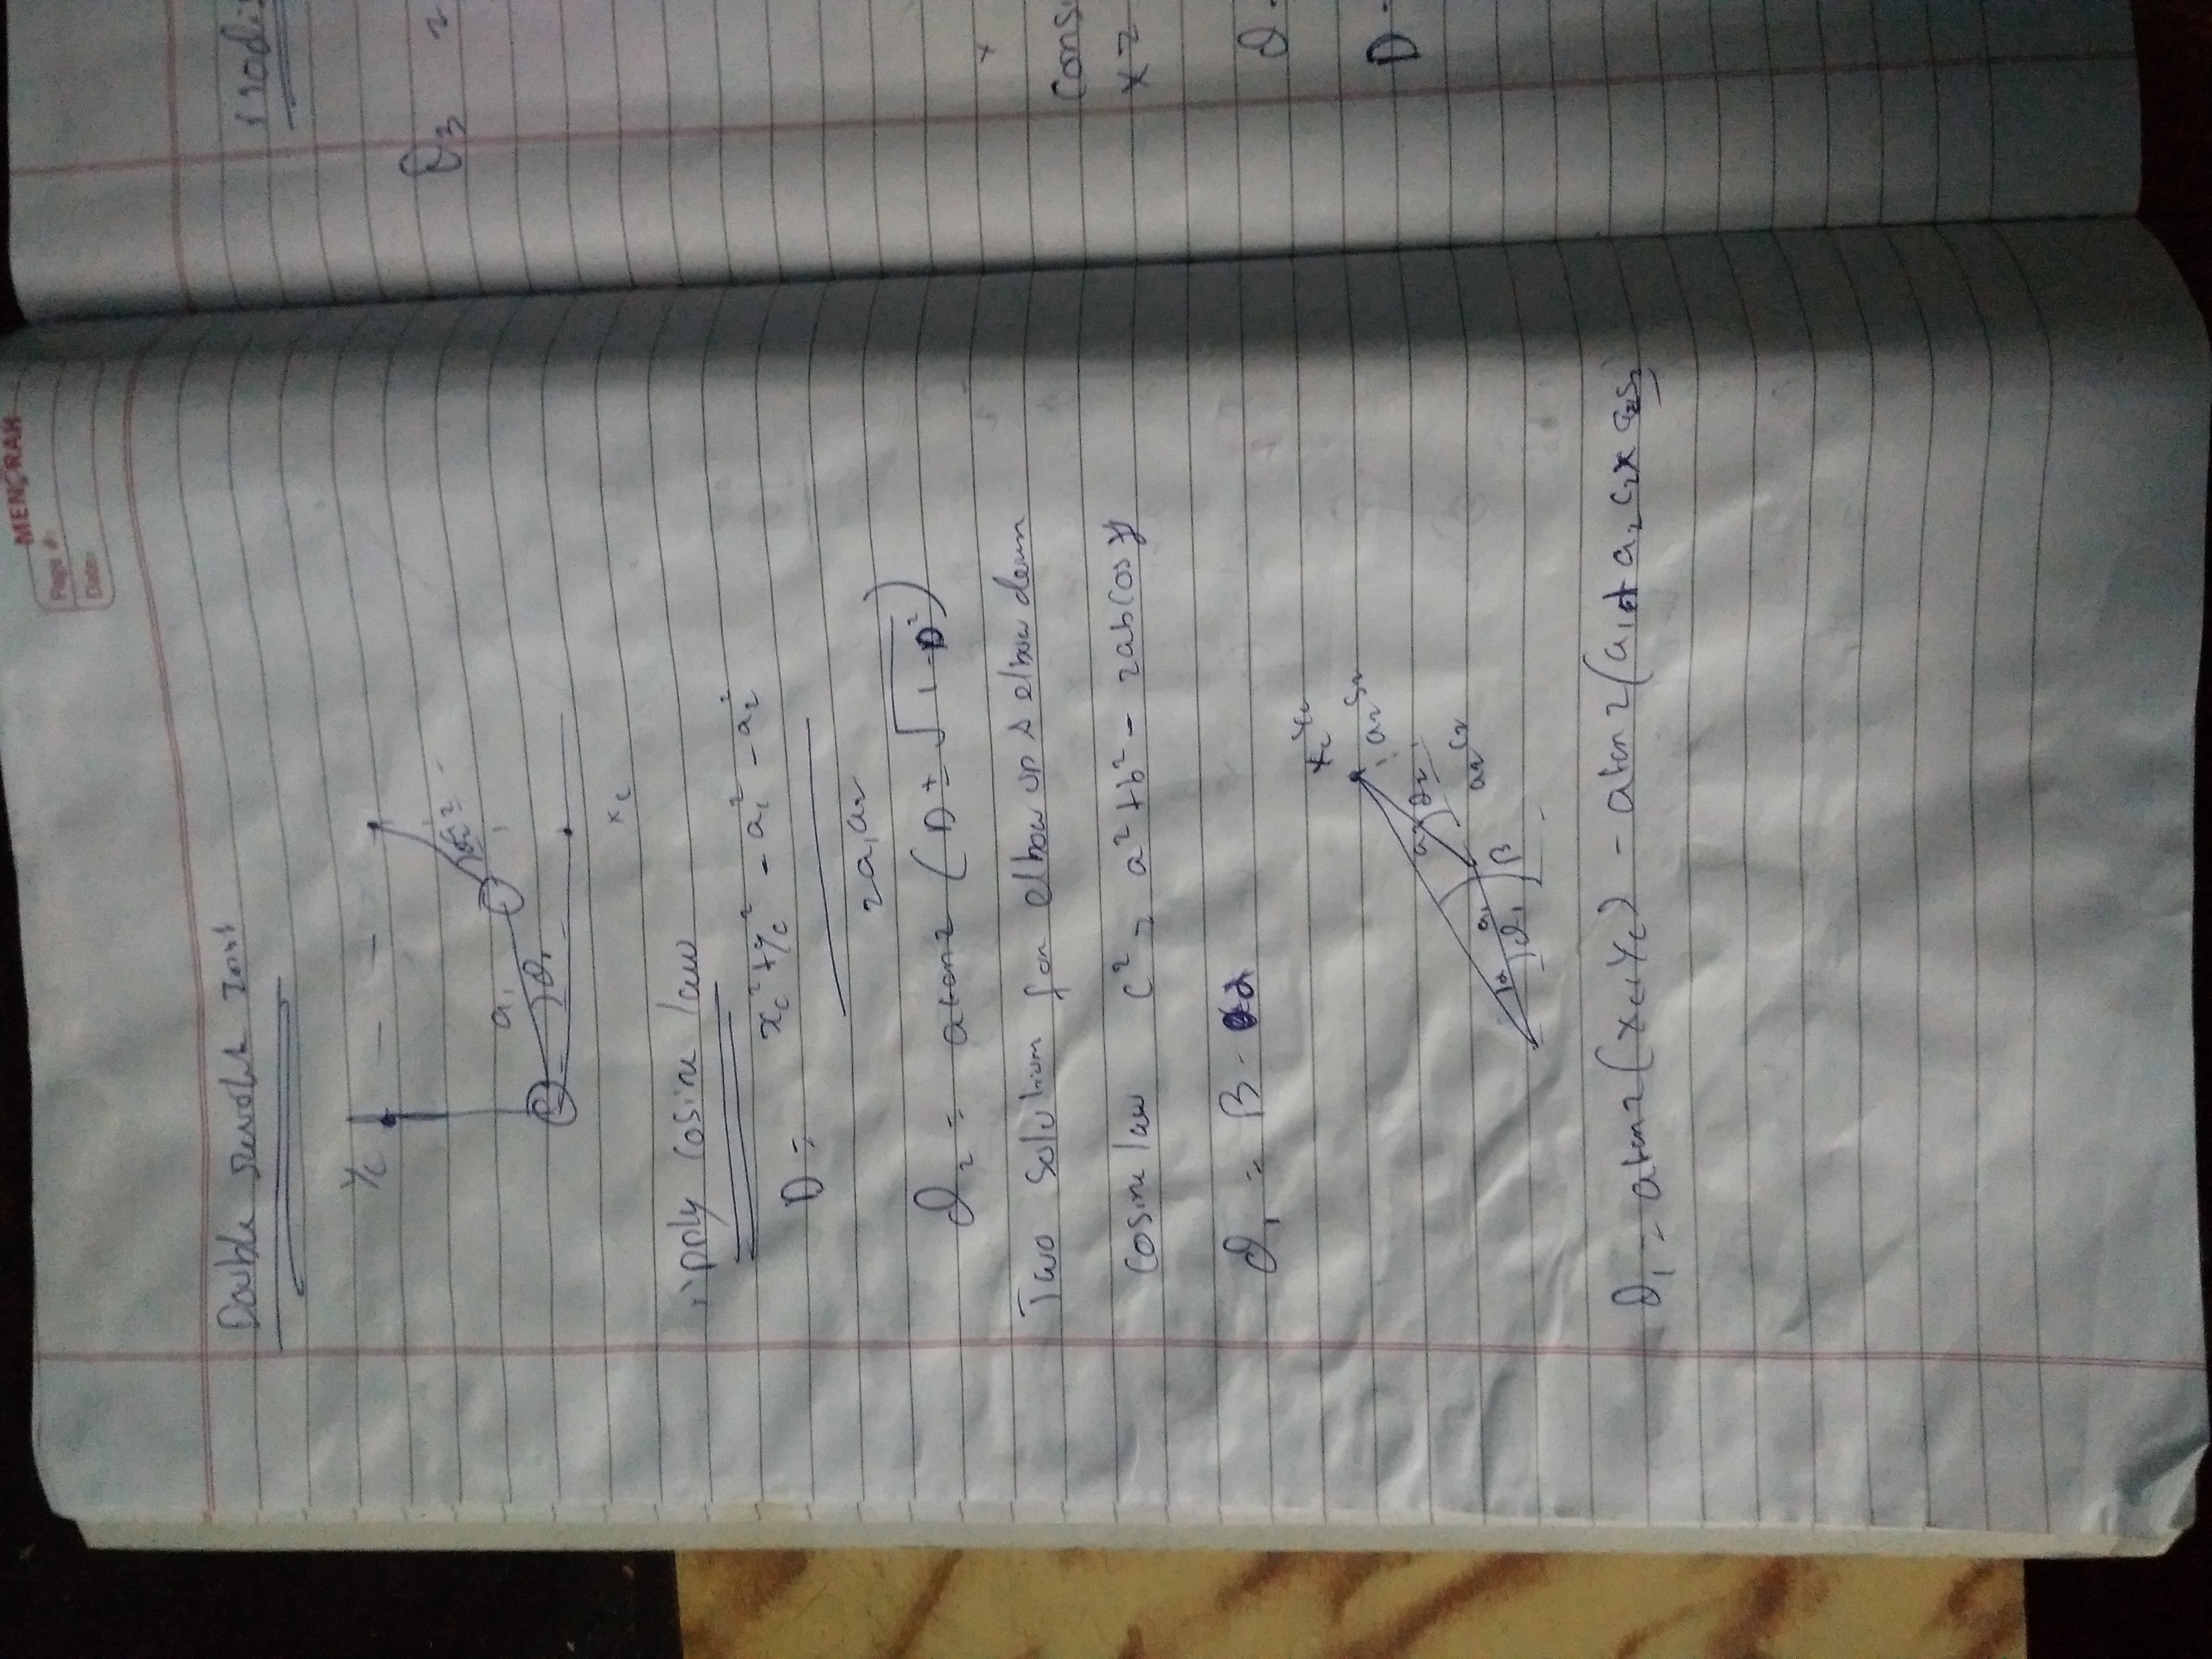 MENORAH
Page #:
Date:
Double revolute Joint
Yc
a1
θ1
xc
Apply Cosine law
D = xc² + yc² - a1² - a2²
2a1a2
θ2 = atan2 (D ± √1-D²)
Two Solution for elbow up & elbow down
Cosine law c² = a² + b² - 2ab Cos γ
θ1 = β - α
xc yc
a2 S2
a2
θ2
a2 c2
a1
α
θ1
β
θ1 = atan2(xc, Yc) - atan2(a1 + a2 c2, a2 S2
θ3 =
x
Cons
x =
θ
D